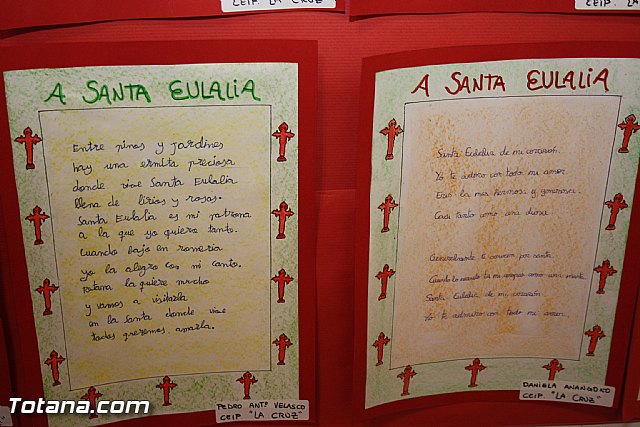 CEIP. "LA CRUZ"
A SANTA EULALIA
Entre pinos y jardines
hay una ermita preciosa
donde vive Santa Eulalia
llena de lirios y rosas.
Santa Eulalia es mi patrona
a la que yo quiero tanto.
Cuando bajo en romería
yo la alegro con mi canto.
Totana la quiere mucho
y vamos a visitarla
en la santa donde vive
todos queremos amarla.
PEDRO ANTº VELASCO
CEIP. "LA CRUZ"
A SANTA EULALIA
Santa Eulalia de mi corazón.
Yo te adoro con todo mi amor
Eres la más hermosa y generosa.
Casi tanto como una diosa.
Generalmente te conocen por santa.
Santa Eulalia de mi corazón
Yo te admiro con todo mi amor.
DANIELA
CEIP. "LA CRUZ"
Totana.com